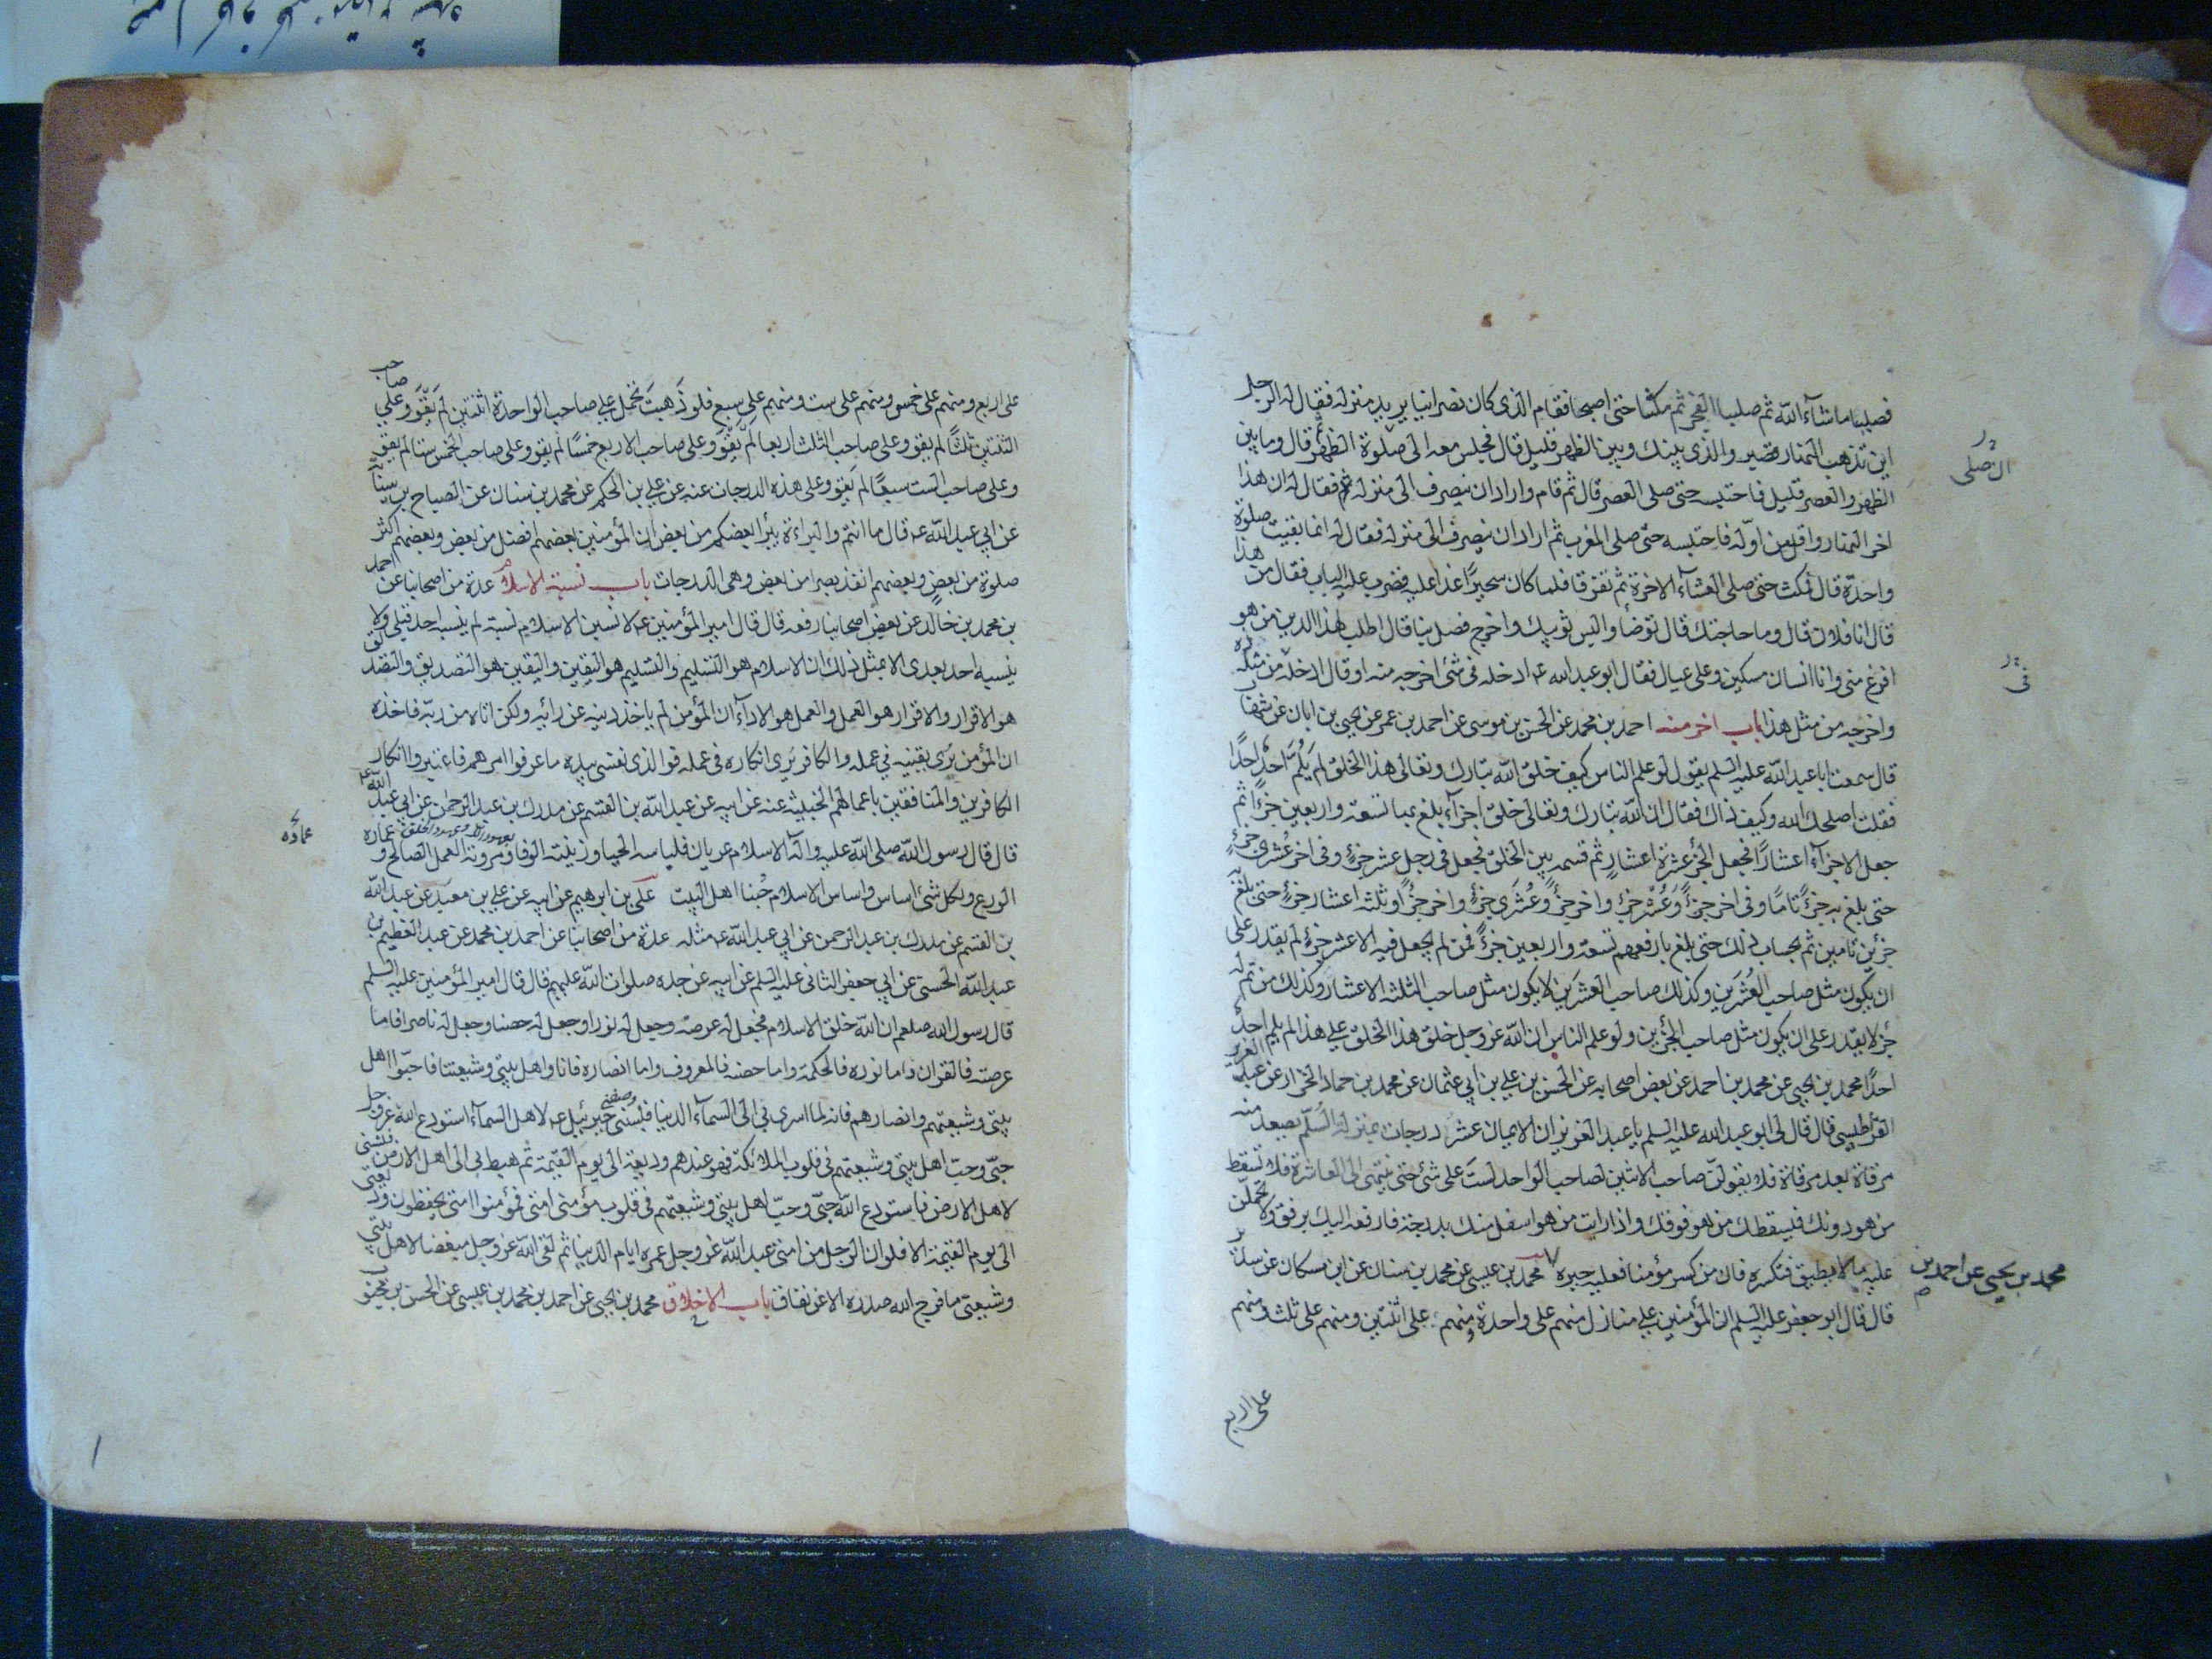 فصليا ما شاء الله ثم صليا الفجر ثم مكثا حتى اصبحا فقام الذى كان نصرانيا يريد منزله فقال له الرجل
اين تذهب النهار قصير والذى بينك وبين الظهر قليل قال فجلس معه الى صلوة الظهر ثم قال وما بين
الظهر والعصر قليل فاحتبسه حتى صلى العصر قال ثم قام واراد ان ينصرف الى منزله فقال له ان هذا
اخر النهار واقل من اوله فاحتبسه حتى صلى المغرب ثم اراد ان ينصرف الى منزله فقال له انما بقيت صلوة
واحدة قال فمكث حتى صلى العشاء الاخرة ثم تفرقا فلما كان سحيرا غدا عليه فضرب عليه الباب فقال من هذا
قال انا فلان قال وما حاجتك قال توضأ والبس ثوبيك واخرج فصل بنا قال اطلب لهذا الدين من هو
افرغ منى وانا انسان مسكين وعلى عيال فقال ابو عبد الله ع ادخله فى شئ اخرجه منه او قال ادخله من مثل ذه
واخرجه من مثل هذا باب اخر منه احمد بن محمد عن الحسن بن موسى عن احمد بن عمر عن يحيى بن ابان عن شهاب
قال سمعت ابا عبد الله عليه السلم يقول لو علم الناس كيف خلق الله تبارك وتعالى هذا الخلق لم يلم احد احدا
فقلت اصلحك الله وكيف ذاك فقال ان الله تبارك وتعالى خلق اجزآء بلغ بها تسعة واربعين جزءا ثم
جعل الاجزآء اعشارا فجعل الجزء عشرة اعشار ثم قسمه بين الخلق فجعل فى رجل عشر جزء وفى اخر عشرى جزء
حتى بلغ به جزءا تاما وفى اخر جزءا وعشر جزء واخر جزءا وعشرى جزء واخر جزءا وثلثه اعشار جزء حتى بلغ به
جزئين تامين ثم بحساب ذلك حتى بلغ بارفعهم تسعة واربعين جزءا فمن لم يجعل فيه الا عشر جزء لم يقدر على
ان يكون مثل صاحب العشرين وكذلك صاحب العشرين لا يكون مثل صاحب الثلثه الاعشار وكذلك من تم له
جزء لا يقدر على ان يكون مثل صاحب الجزئين ولو علم الناس ان الله عز وجل خلق هذا الخلق على هذا لم يلم احد
احدا محمد بن يحيى عن محمد بن احمد عن بعض اصحابه عن الحسن بن على بن ابى عثمان عن محمد بن حماد الخزاز عن عبد العزيز
القراطيسى قال قال لى ابو عبد الله عليه السلم يا عبد العزيز ان الايمان عشر درجات بمنزلة السلم يصعد منه
مرقاة بعد مرقاة فلا يقولن صاحب الاثنين لصاحب الواحد لست على شئ حتى ينتهى الى العاشرة فلا تسقط
من هو دونك فيسقطك من هو فوقك واذا رايت من هو اسفل منك بدرجة فارفعه اليك برفق ولا تحملن
عليه ما لا يطيق فتكسره فان من كسر مؤمنا فعليه جبره محمد بن عيسى عن محمد بن سنان عن ابن مسكان عن سدير
قال قال ابو جعفر عليه السلم ان المؤمنين على منازل منهم على واحدة ومنهم على اثنتين ومنهم على ثلث ومنهم
على اربع
فى
محمد بن يحيى عن احمد بن
على اربع ومنهم على خمس ومنهم على ست ومنهم على سبع فلو ذهبت تحمل على صاحب الواحدة اثنتين لم يقو وعلى صاحب
الثنتين ثلثا لم يقو وعلى صاحب الثلث اربعا لم يقو وعلى صاحب الاربع خمسا لم يقو وعلى صاحب الخمس ستا لم يقو
وعلى صاحب الست سبعا لم يقو وعلى هذه الدرجات عنه عن على بن الحكم عن محمد بن سنان عن الصباح بن سيابة
عن ابى عبد الله ع قال ما انتم والبراءة يبرأ بعضكم من بعض ان المؤمنين بعضهم افضل من بعض وبعضهم اكثر
صلوة من بعض وبعضهم انفذ بصرا من بعض وهى الدرجات باب نسبة الاسلام عدة من اصحابنا عن احمد
بن محمد بن خالد عن بعض اصحابنا رفعه قال قال امير المؤمنين ع لانسبن الاسلام نسبة لم ينسبه احد قبلى ولا
ينسبه احد بعدى الا بمثل ذلك ان الاسلام هو التسليم والتسليم هو اليقين واليقين هو التصديق والتصديق
هو الاقرار والاقرار هو العمل والعمل هو الادآء ان المؤمن لم ياخذ دينه عن رائيه ولكن اتاه من ربه فاخذه
ان المؤمن يرى يقينه فى عمله والكافر يرى انكاره فى عمله فو الذى نفسى بيده ما عرفوا امرهم فاعتبروا انكار
الكافرين والمنافقين باعمالهم الخبيثة عنه عن ابيه عن عبد الله بن القسم عن مدرك بن عبد الرحمن عن ابى عبد الله ع
قال قال رسول الله صلى الله عليه واله الاسلام عريان فلباسه الحياء وزينته الوفا ومروته العمل الصالح وعماده
الورع ولكل شئ اساس واساس الاسلام حبنا اهل البيت على بن ابرهيم عن ابيه عن على بن معبد عن عبد الله
بن القسم عن مدرك بن عبد الرحمن عن ابى عبد الله ع مثله عدة من اصحابنا عن احمد بن محمد عن عبد العظيم بن
عبد الله الحسنى عن ابى جعفر الثانى عليه السلم عن ابيه عن جده صلوات الله عليهم قال قال امير المؤمنين عليه السلم
قال رسول الله صلعم ان الله خلق الاسلام فجعل له عرصة وجعل له نورا وجعل له حصنا وجعل له ناصرا فاما
عرصته فالقران واما نوره فالحكمة واما حصنه فالمعروف واما انصاره فانا واهل بيتى وشيعتنا فاحبوا اهل
بيتى وشيعتهم وانصارهم فانه لما اسرى بى الى السمآء الدنيا فنسبنى جبرئيل ع لاهل السمآء استودع الله عز وجل
حبى وحب اهل بيتى وشيعتهم فى قلوب الملائكة فهو عندهم وديعة الى يوم القيمة ثم هبط بى الى اهل الارض فنسبنى
لاهل الارض فاستودع الله حبى وحب اهل بيتى وشيعتهم فى قلوب مؤمنى امتى فمؤمنوا امتى يحفظون وديعتى
الى يوم القيمة الا فلو ان الرجل من امتى عبد الله عز وجل عمره ايام الدنيا ثم لقى الله عز وجل مبغضا لاهل بيتى
وشيعتى ما فرج الله صدره الا عن نفاق باب الاخلاق محمد بن يحيى عن احمد بن محمد بن عيسى عن الحسن بن محبوب
عماده